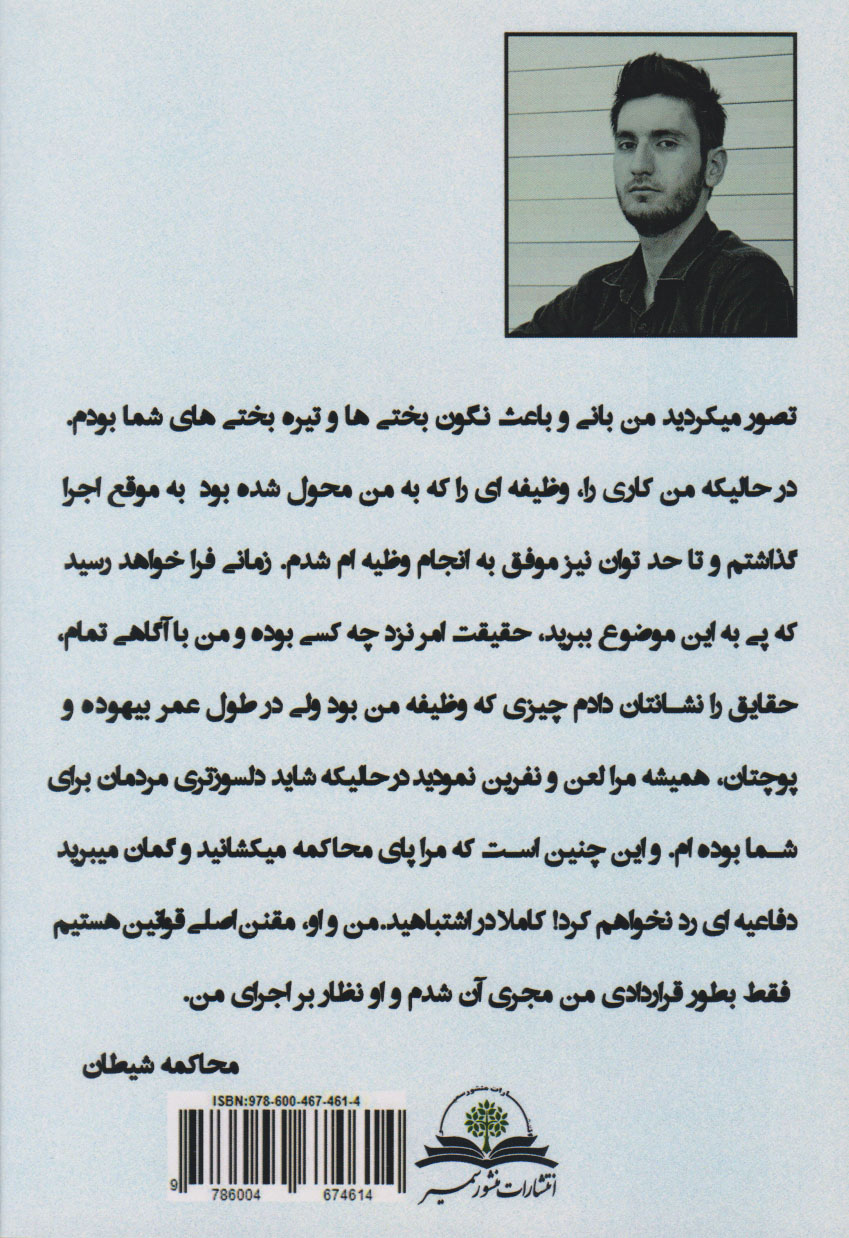 تصور میکردید من بانی و باعث نگون بختی ها و تیره بختی های شما بودم.
در حالیکه من کاری را، وظیفه ای را که به من محول شده بود به موقع اجرا
گذاشتم و تا حد توان نیز موفق به انجام وظیه ام شدم. زمانی فرا خواهد رسید
که پی به این موضوع ببرید، حقیقت امر نزد چه کسی بوده و من با آگاهی تمام،
حقایق را نشانتان دادم چیزی که وظیفه من بود ولی در طول عمر بیهوده و
پوچتان، همیشه مرا لعن و نفرین نمودید در حالیکه شاید دلسوزتری مردمان برای
شما بوده ام. و این چنین است که مرا پای محاکمه میکشانید و گمان میبرید
دفاعیه ای رد نخواهم کرد! کاملا در اشتباهید.من و او، مقنن اصلی قوانین هستیم
فقط بطور قراردادی من مجری آن شدم و او نظار بر اجرای من.
محاکمه شیطان
ISBN:978-600-467-461-4
9 786004 674614
انتشارات منشور سمیر